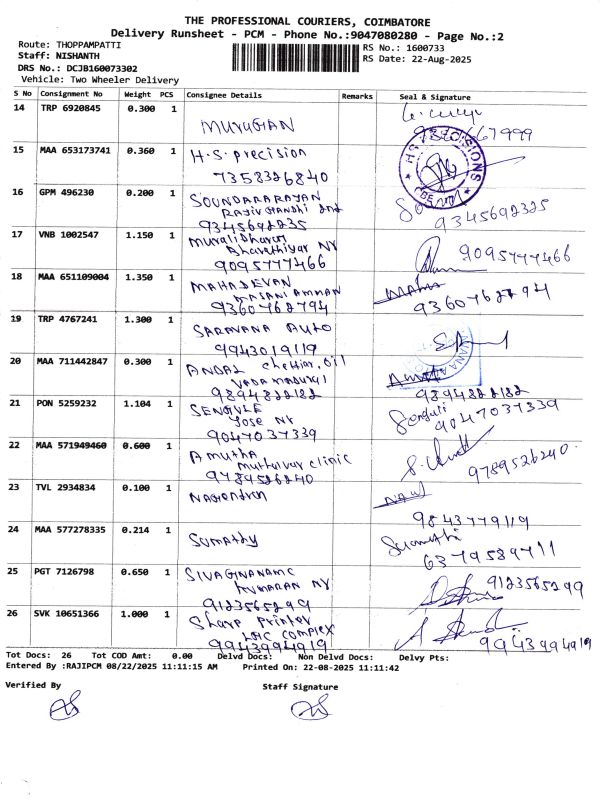 THE PROFESSIONAL COURIERS, COIMBATORE
Delivery Runsheet - PCM - Phone No.:9047080280 - Page No.:2
Route: THOPPAMPATTI
RS No.: 1600733
Staff: NISHANTH
RS Date: 22-Aug-2025
DRS No.: DCJB160073302
Vehicle: Two Wheeler Delivery
S No Consignment No Weight PCS Consignee Details Remarks Seal & Signature
14 TRP 6920845 0.300 1
MURUGAN
15 MAA 653173741 0.360 1 H.S. precision
7358326840
16 GPM 496230 0.200 1 SOUNDARARAJAN
Rajiv Gandhi 2nd
9345692235 9345692335
17 VNB 1002547 1.150 1 Muralidharan
Bharathiyar NR
9095777466 9095777466
18 MAA 651109004 1.350 1 MAHADEVAN
MASANI AMMAN
9360762794 9360762794
19 TRP 4767241 1.300 1 SARAVANA AUTO
9943019119
20 MAA 711442847 0.300 1 ANDAL chettim. oil
VADAMADURAI
9894822182 9894822182
21 PON 5259232 1.104 1 SENGULE
JOSE NR
9047037339 9047037339
22 MAA 571949460 0.600 1 Amutha
Muthulvar clinic
9789526240 9789526240
23 TVL 2934834 0.100 1 Nagendran
9843779119
24 MAA 577278335 0.214 1 Sumathy
6379589711
25 PGT 7126798 0.650 1 SIVAGNANAMC
KUMARAN NY
9123565299 9123565299
26 SVK 10651366 1.000 1 Sharp Printer
LMC complex
9943994919 9943994919
Tot Docs: 26 Tot COD Amt: 0.00 Delvd Docs: Non Delvd Docs: Delvy Pts:
Entered By :RAJIPCM 08/22/2025 11:11:15 AM Printed On: 22-08-2025 11:11:42
Verified By Staff Signature